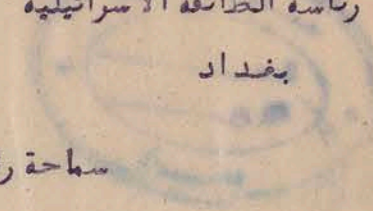 رئاسة الطائفة الاسرائيلية
بغداد
سماحة ر